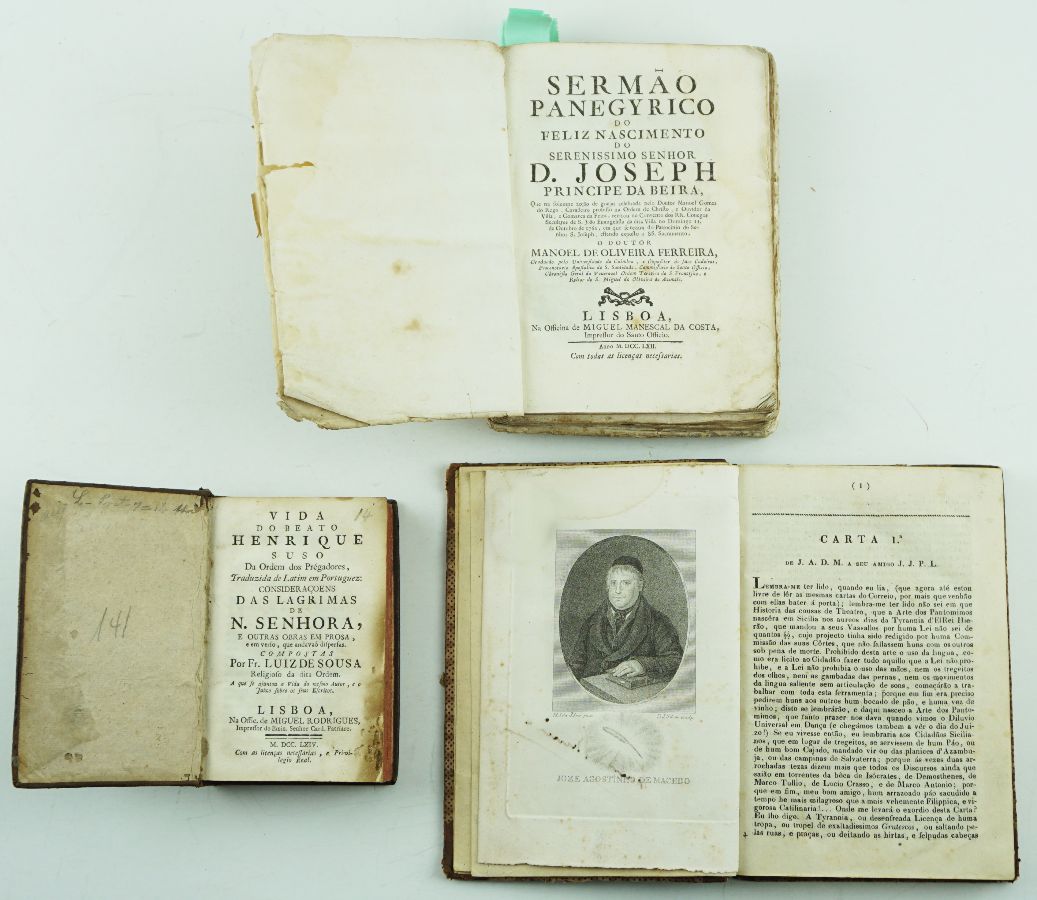 SERMÃO
PANEGYRICO
DO
FELIZ NASCIMENTO
DO
SERENISSIMO SENHOR
D. JOSEPH
PRINCIPE DA BEIRA,
Que na solemne acção de graças celebrada pelo Doutor Manoel Gomes
do Rego, Cavalleiro professo na Ordem de Christo, e Ouvidor da
Villa, e Comarca da Feira, recitou no Convento dos RR. Conegos
Seculares de S. João Evangelista da dita Villa no Domingo 11.
de Outubro de 1761, em que se rezou do Patrocinio do Se-
nhor S. Joseph, estando exposto o SS. Sacramento,
O DOUTOR
MANOEL DE OLIVEIRA FERREIRA,
Graduado pela Universidade de Coimbra, e Oppositor às suas Cadeiras,
Protonotario Apostolico de S. Santidade, Commissario do Santo Officio,
Chronista Geral da Veneravel Ordem Terceira de S. Francisco, e
Reitor de S. Miguel de Oliveira de Azemeis.
LISBOA,
Na Officina de MIGUEL MANESCAL DA COSTA,
Impressor do Santo Officio.
Anno M. DCC. LXII.
Com todas as licenças necessarias.
141
14
VIDA
DO BEATO
HENRIQUE
SUSO
Da Ordem dos Prégadores,
Traduzida de Latim em Portuguez:
CONSIDERAÇOENS
DAS LAGRIMAS
DE
N. SENHORA,
E OUTRAS OBRAS EM PROSA,
e em verso, que andavaõ dispersas.
COMPOSTAS
Por Fr. LUIZ DE SOUSA
Religioso da dita Ordem.
A que se ajuntou a Vida do mesmo Autor, e o
Juizo sobre os seus Escritos.
LISBOA,
Na Offic. de MIGUEL RODRIGUES,
Impressor do Emin. Senhor Card. Patriarc.
M. DCC. LXIV.
Com as licenças necessarias, e Privi-
legio Real.
JOZE AGOSTINHO DE MACEDO
(1)
CARTA 1.ª
DE J. A. D. M. A SEU AMIGO J. J. P. L.
LEMBRA-ME ter lido, quando eu lia, (que agora até estou
livre de lêr as mesmas cartas do Correio, por mais que venhão
com ellas bater á porta); lembra-me ter lido não sei em que
Historia das cousas de Theatro, que a Arte dos Pantomimos
nascêra em Sicilia nos aureos dias da Tyrannia d'ElRei Hie-
rão, que mandou a seus Vassallos por huma Lei não sei de
quantos §§, cujo projecto tinha sido redigido por huma Com-
missão das suas Côrtes, que não fallassem huns com os outros
sob pena de morte. Prohibido desta arte o uso da lingua, co-
mo era licito ao Cidadão fazer tudo aquillo que a Lei não pro-
hibe, e a Lei não prohibia o uso das mãos, nem os tregeitos
dos olhos, nem as gambadas das pernas, nem os movimentos
da lingua saliente sem articulação de sons, começárão a tra-
balhar com toda esta ferramenta; porque em fim era preciso
pedirem huns aos outros hum bocado de pão, e huma vez de
vinho; disto se lembrárão, e daqui nasceu a Arte dos Panto-
mimos, que tanto prazer nos dava quando vimos o Diluvio
Universal em Dança (e chegámos tambem a vêr o dia do Jui-
zo!) Se eu vivesse então, eu lembraria aos Cidadãos Sicilia-
nos, que em lugar de tregeitos, se servissem de hum Páo, ou
de hum bom Cajado, mandado vir ou das planices d'Azambu-
ja, ou das campinas de Salvaterra; porque ás vezes duas ar-
rochadas tezas dizem mais que todos os Discursos ainda que
saião em torrentes da bôca de Isócrates, de Demosthenes, de
Marco Tullio, de Lucio Crasso, e de Marco Antonio; por-
que em fim, meu bom amigo, hum arrazoado páo sacudido a
tempo he mais milagroso que a mais vehemente Filippica, e vi-
gorosa Catilinaria!... Onde me levará o exordio desta Carta?
Eu lho digo. A Tyrannia, ou desenfreada Licença de huma
tropa, ou tropel de exaltadissimos Grutescos, ou saltando pe-
las ruas, e praças, ou deitando as hirtas, e felpudas cabeças